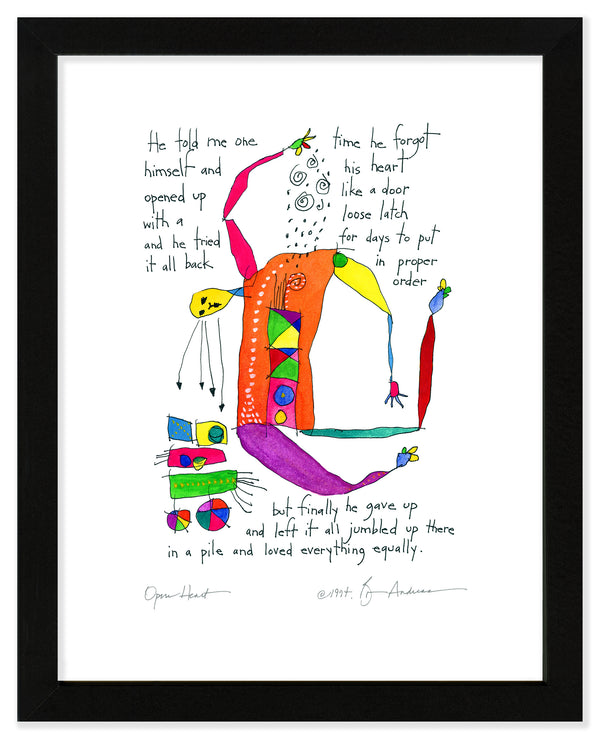 He told me one time he forgot
himself and his heart
opened up like a door
with a loose latch
and he tried for days to put
it all back in proper
order
but finally he gave up
and left it all jumbled up there
in a pile and loved everything equally.
Open Heart ©1994. Andreas